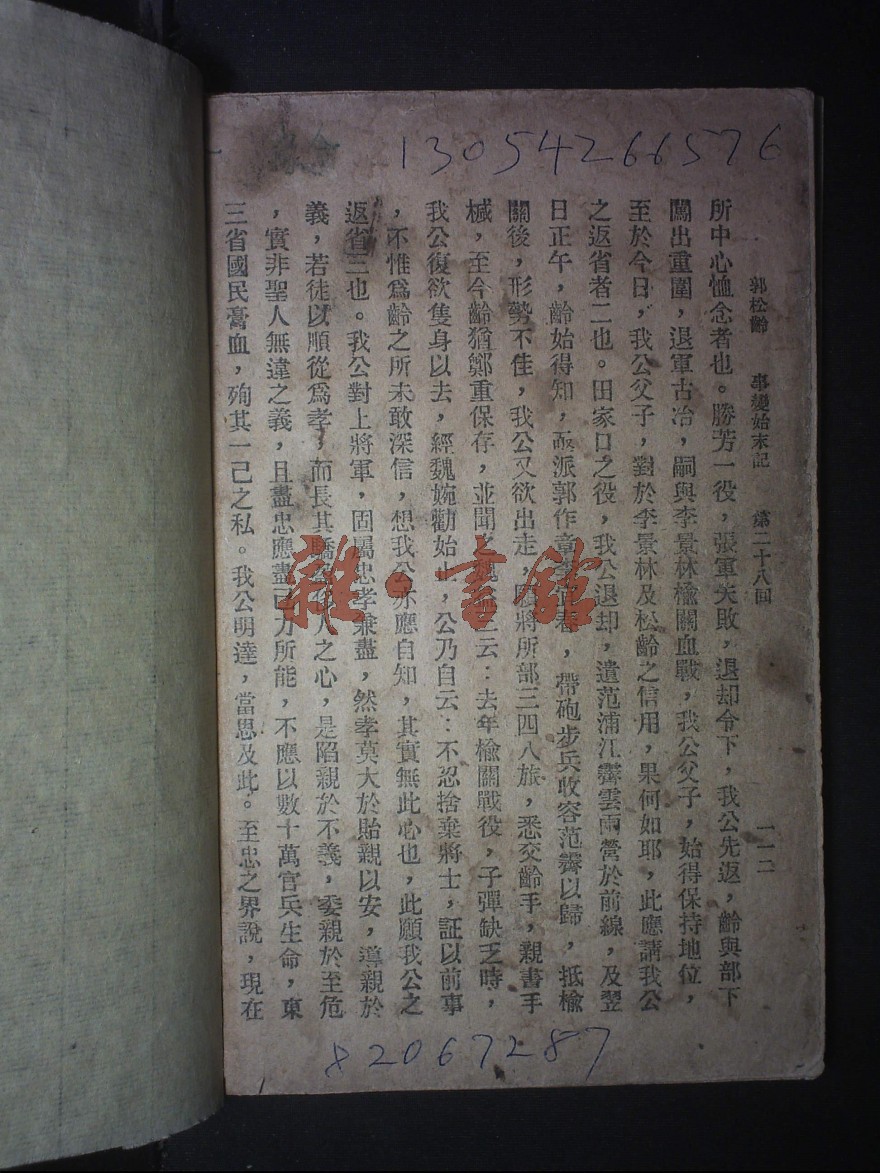 13054266576
郭松齡 事變始末記 第二十八回 一一二
所中心恤念者也。勝芳一役，張軍失敗，退却令下，我公先返，齡與部下
闖出重圍，退軍古冶，嗣與李景林楡關血戰，我公父子，始得保持地位，
至於今日，我公父子，對於李景林及松齡之信用，果何如耶，此應請我公
之返省者二也。田家口之役，我公退却，遺范浦江霽雲兩營於前線，及翌
日正午，齡始得知，亟派郭作章 春，帶砲步兵收容范霽以歸，抵楡
關後，形勢不佳，我公又欲出走，愿將所部三四八旅，悉交齡手，親書手
槭，至今齡猶鄭重保存，並聞之魏 三云：去年楡關戰役，子彈缺乏時，
我公復欲隻身以去，經魏婉勸始止，公乃自云：不忍捨棄將士，証以前事
，不惟爲齡之所未敢深信，想我公亦應自知，其實無此心也，此願我公之
返省三也。我公對上將軍，固屬忠孝兼盡，然孝莫大於貽親以安，導親於
義，若徒以順從爲孝，而長其驕 人之心，是陷親於不義，委親於至危
，實非聖人無違之義，且盡忠應盡己力所能，不應以數十萬官兵生命，東
三省國民膏血，殉其一己之私。我公明達，當思及此。至忠之界說，現在
82067287
雜·書館